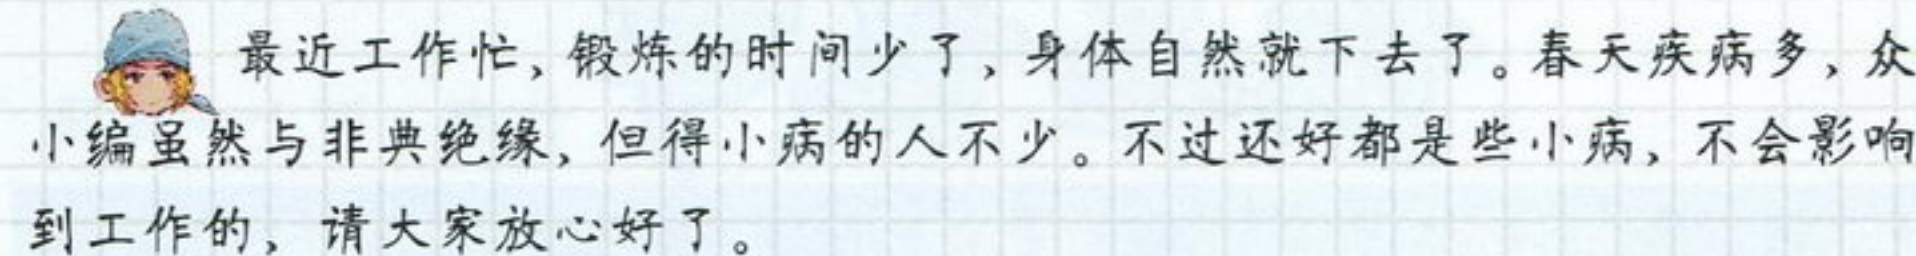 最近工作忙，锻炼的时间少了，身体自然就下去了。春天疾病多，众
小编虽然与非典绝缘，但得小病的人不少。不过还好都是些小病，不会影响
到工作的，请大家放心好了。